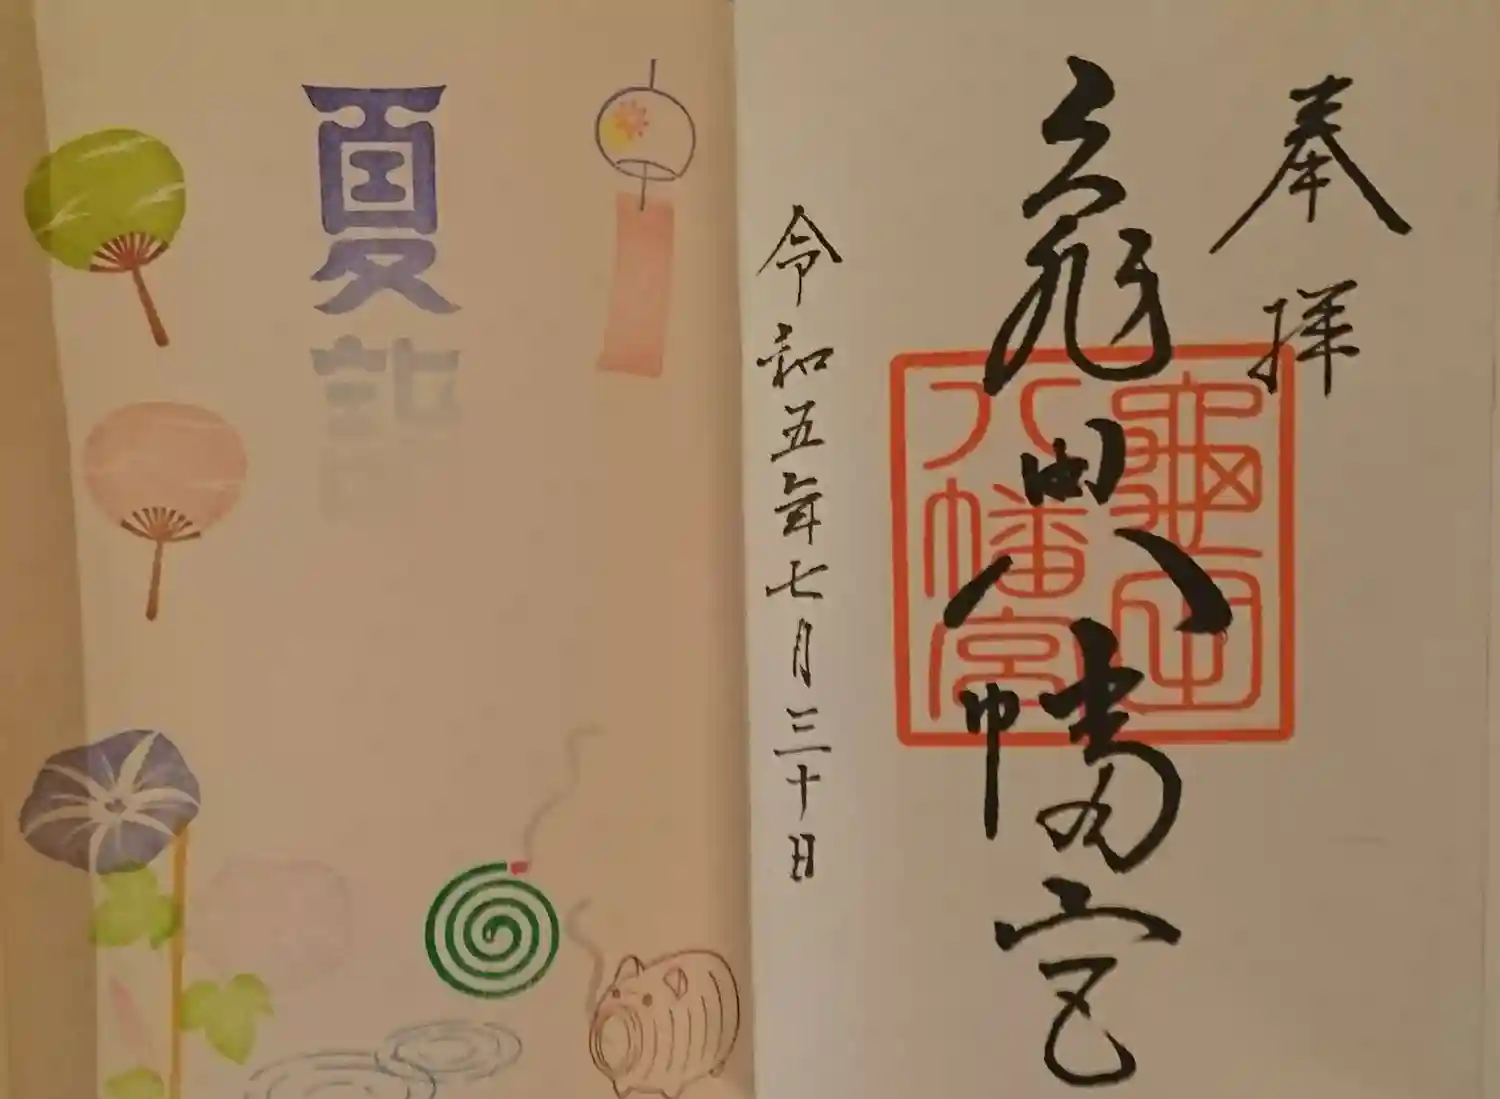 奉拝
亀田八幡宮
亀田
八幡宮
令和五年七月三十日
夏詣